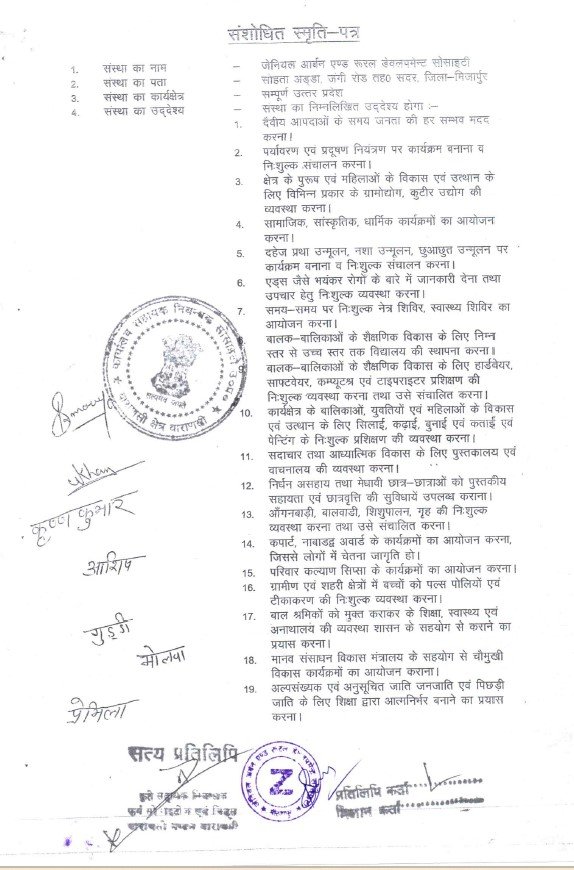 संशोधित स्मृति–पत्र
1. संस्था का नाम – जेनियल आर्बन एण्ड रूरल डेवलपमेन्ट सोसाइटी
2. संस्था का पता – साहता अड्डा, जंगी रोड तह0 सदर, जिला–मिर्जापुर
3. संस्था का कार्यक्षेत्र – सम्पूर्ण उत्तर प्रदेश
4. संस्था का उद्देश्य – संस्था का निम्नलिखित उद्देश्य होगा :–
1. दैवीय आपदाओं के समय जनता की हर सम्भव मदद
करना!
2. पर्यावरण एवं प्रदूषण नियंत्रण पर कार्यक्रम बनाना व
निःशुल्क संचालन करना।
3. क्षेत्र के पुरूष एवं महिलाओं के विकास एवं उत्थान के
लिए विभिन्न प्रकार के ग्रामोद्योग, कुटीर उद्योग की
व्यवस्था करना।
4. सामाजिक, सांस्कृतिक, धार्मिक कार्यक्रमों का आयोजन
करना।
5. दहेज प्रथा उन्मूलन, नशा उन्मूलन, छुआछुत उन्मूलन पर
कार्यक्रम बनाना व निःशुल्क संचालन करना।
6. एड्स जैसे भयंकर रोगों के बारे में जानकारी देना तथा
उपचार हेतु निःशुल्क व्यवस्था करना।
7. समय–समय पर निःशुल्क नेत्र शिविर, स्वास्थ्य शिविर का
आयोजन करना।
बालक–बालिकाओं के शैक्षणिक विकास के लिए निम्न
स्तर से उच्च स्तर तक विद्यालय की स्थापना करना॥
बालक–बालिकाओं के शैक्षणिक विकास के लिए हार्डवेयर,
साफ्टवेयर, कम्प्यूटश्र एवं टाइपराइटर प्रशिक्षण की
निःशुल्क व्यवस्था करना तथा उसे संचालित करना।
10. कार्यक्षेत्र के बालिकाओं, युवतियों एवं महिलाओं के विकास
एवं उत्थान के लिए सिलाई, कढ़ाई, बुनाई एवं कताई एवं
पेन्टिंग के निःशुल्क प्रशिक्षण की व्यवस्था करना।
11. सदाचार तथा आध्यात्मिक विकास के लिए पुस्तकालय एवं
वाचनालय की व्यवस्था करना।
12. निर्धन असहाय तथा मेधावी छात्र–छात्राओं को पुस्तकीय
सहायता एवं छात्रवृत्ति की सुविधायें उपलब्ध कराना।
13. आँगनबाड़ी, बालवाडी, शिशुपालन, गृह की निःशुल्क
व्यवस्था करना तथा उसे संचालित करना।
14. कपार्ट, नाबाडद्व अवार्ड के कार्यक्रमों का आयोजन करना,
जिससे लोगों में चेतना जागृति हो।
15. परिवार कल्याण सिप्सा के कार्यक्रमों का आयोजन करना।
16. ग्रामीण एवं शहरी क्षेत्रों में बच्चों को पल्स पोलियों एवं
टीकाकरण की निःशुल्क व्यवस्था करना।
17. बाल श्रमिकों को मुक्त कराकर के शिक्षा, स्वास्थ्य एवं
अनाथालय की व्यवस्था शासन के सहयोग से कराने का
प्रयास करना।
18. मानव संसाधन विकास मंत्रालय के सहयोग से चौमुखी
विकास कार्यक्रमों का आयोजन कराना।
19. अल्पसंख्यक एवं अनुसूचित जाति जनजाति एवं पिछड़ी
जाति के लिए शिक्षा द्वारा आत्मनिर्भर बनाने का प्रयास
करना।
कृष्ण कुमार
आशिष
गुड्डी
प्रेमिला
सत्य प्रतिलिपि
Z
प्रतिलिपि कर्ता
मिलान कर्ता